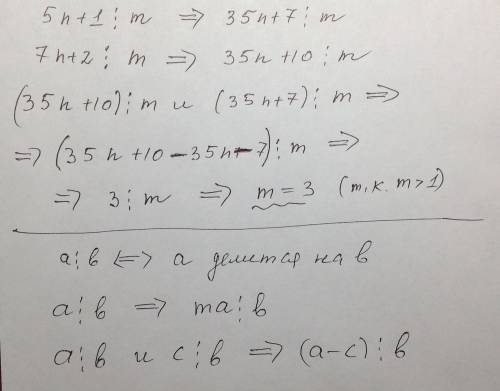 5n+1 ⋮ m ⇒ 35n+7 ⋮ m
7n+2 ⋮ m ⇒ 35n+10 ⋮ m
(35n+10) ⋮ m и (35n+7) ⋮ m ⇒
⇒ (35n+10-35n-7) ⋮ m ⇒
⇒ 3 ⋮ m ⇒ m = 3 (т.к. m>1)
a ⋮ b ⇔ a делится на b
a ⋮ b ⇒ ma ⋮ b
a ⋮ b и c ⋮ b ⇒ (a-c) ⋮ b